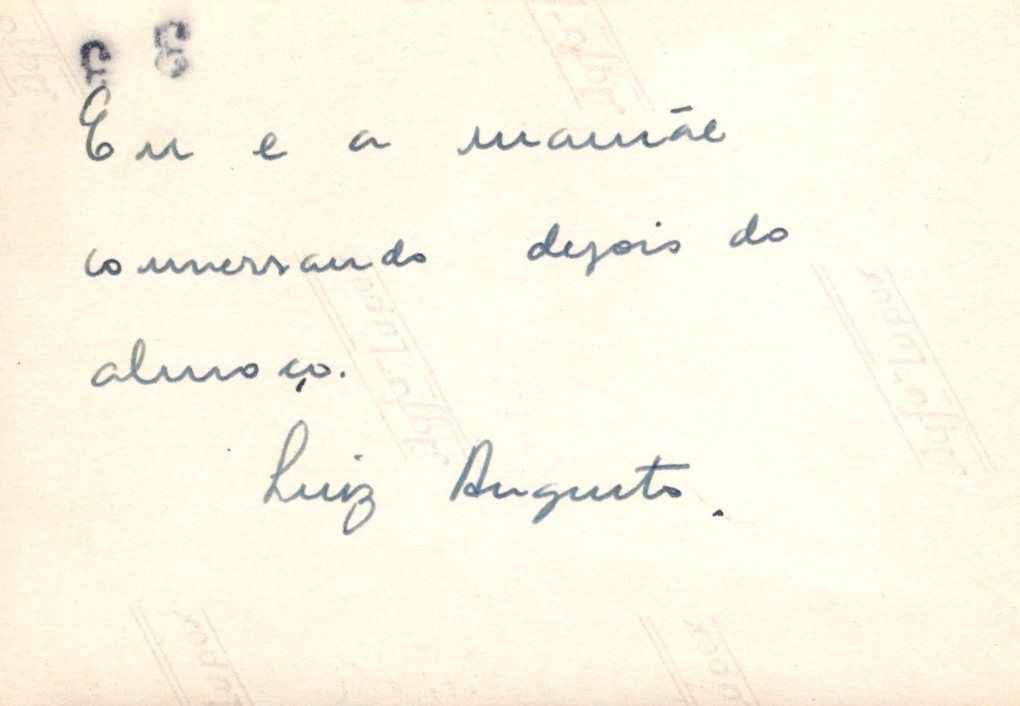 Eu e a mamãe
conversando depois do
almoço.
Luiz Augusto.